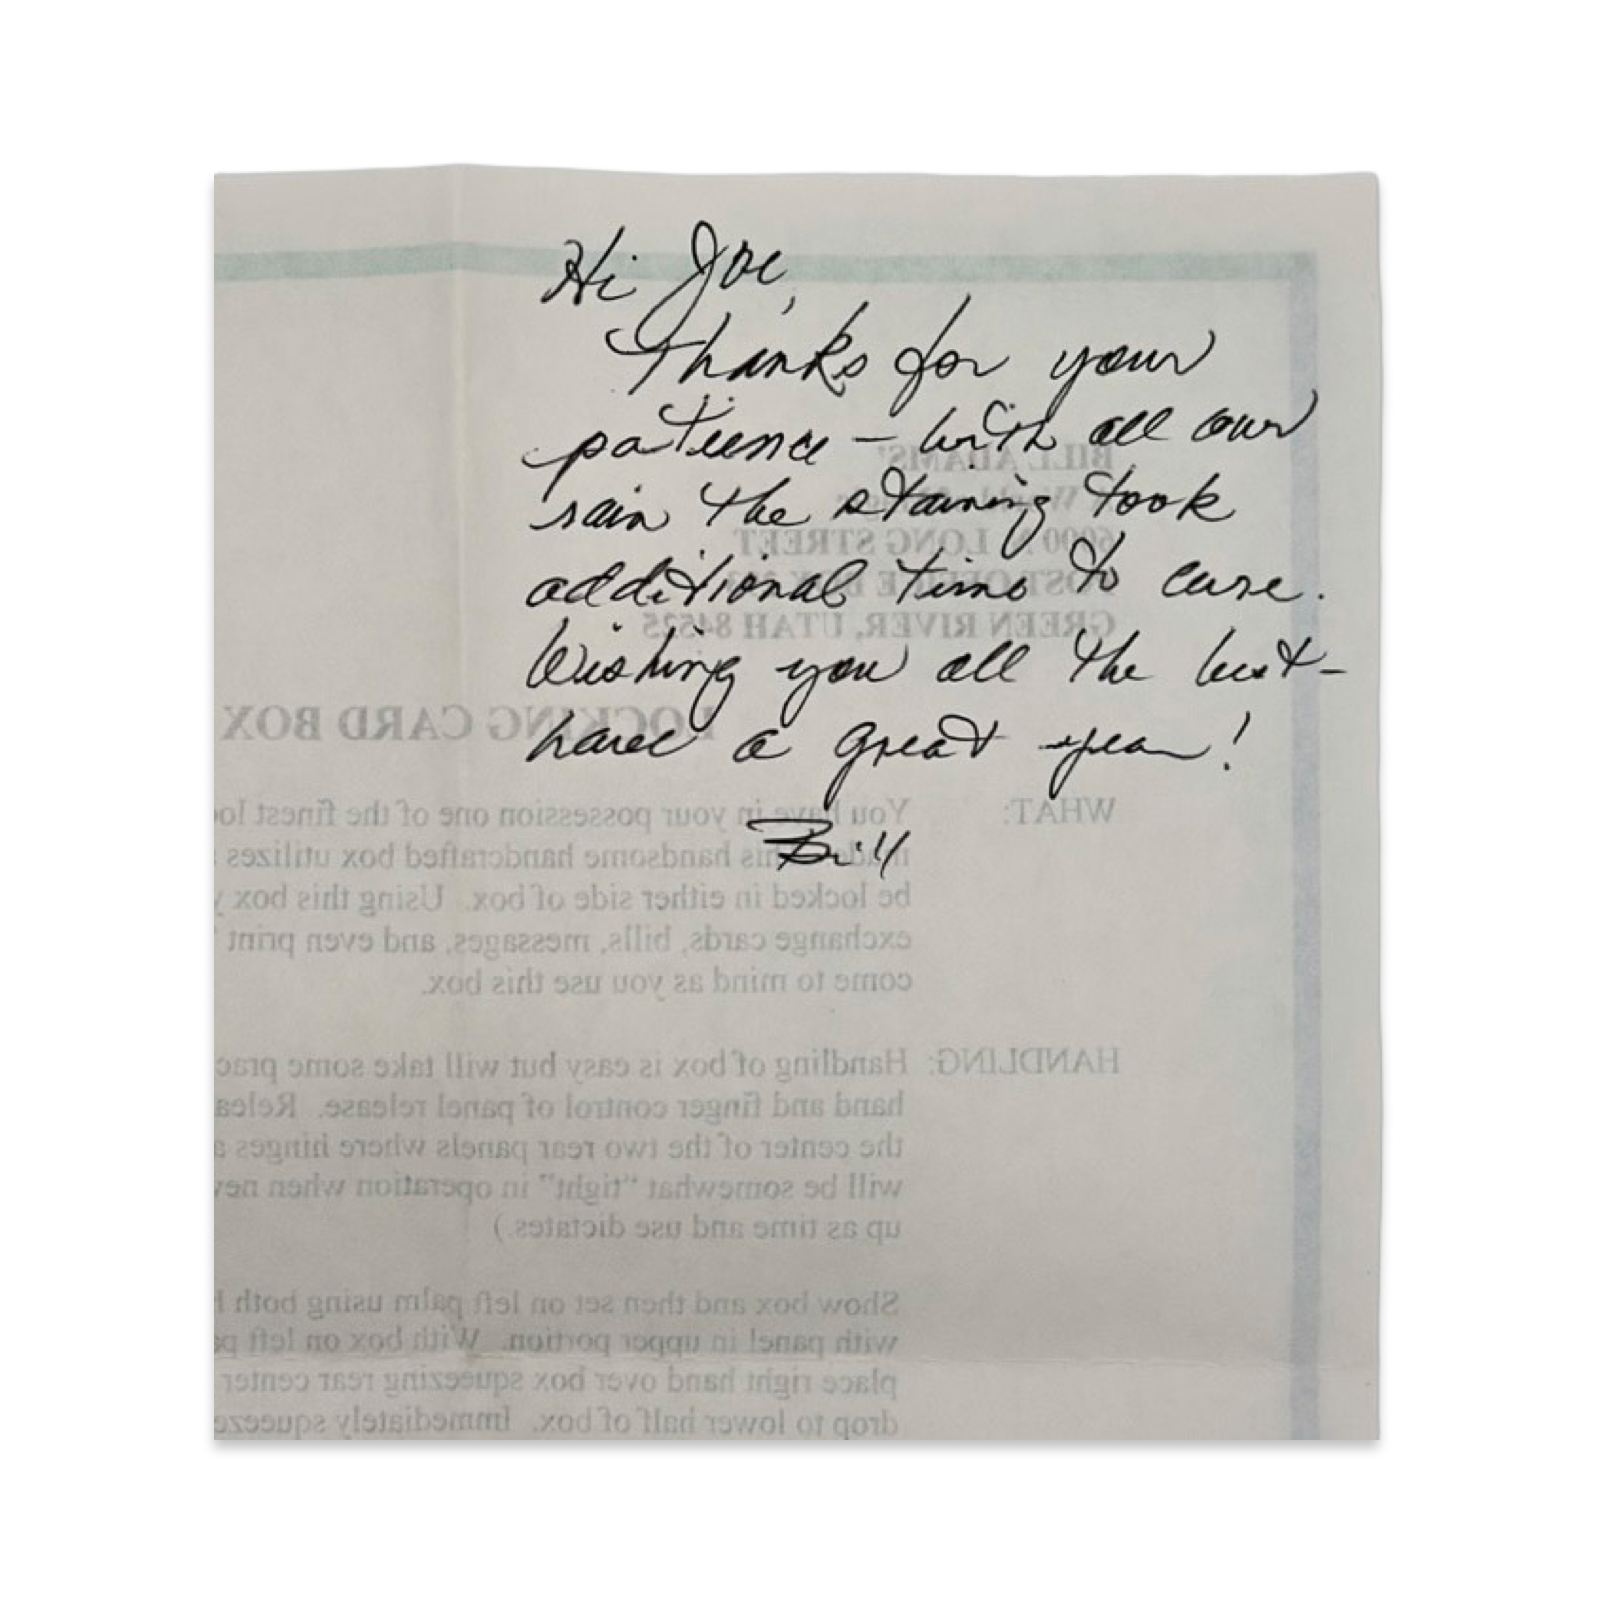 Hi Joe,
Thanks for your
patience - with all our
rain the staining took
additional time to cure.
Wishing you all the best-
have a great year!
Bill
BILL ADAMS'
LONG STREET
GREEN RIVER, UTAH 84525
LOCKING CARD BOX
WHAT: You have in your possession one of the finest
this handsome handcrafted box utilizes
be locked in either side of box. Using this box
exchange cards, bills, messages, and even print
come to mind as you use this box.
HANDLING: Handling of box is easy but will take some
hand and finger control of panel release.
the center of the two rear panels where hinges
will be somewhat "tight" in operation when
up as time and use dictates.)
Show box and then set on left palm using both
with panel in upper portion. With box on left
place right hand over box squeezing rear center
drop to lower half of box. Immediately